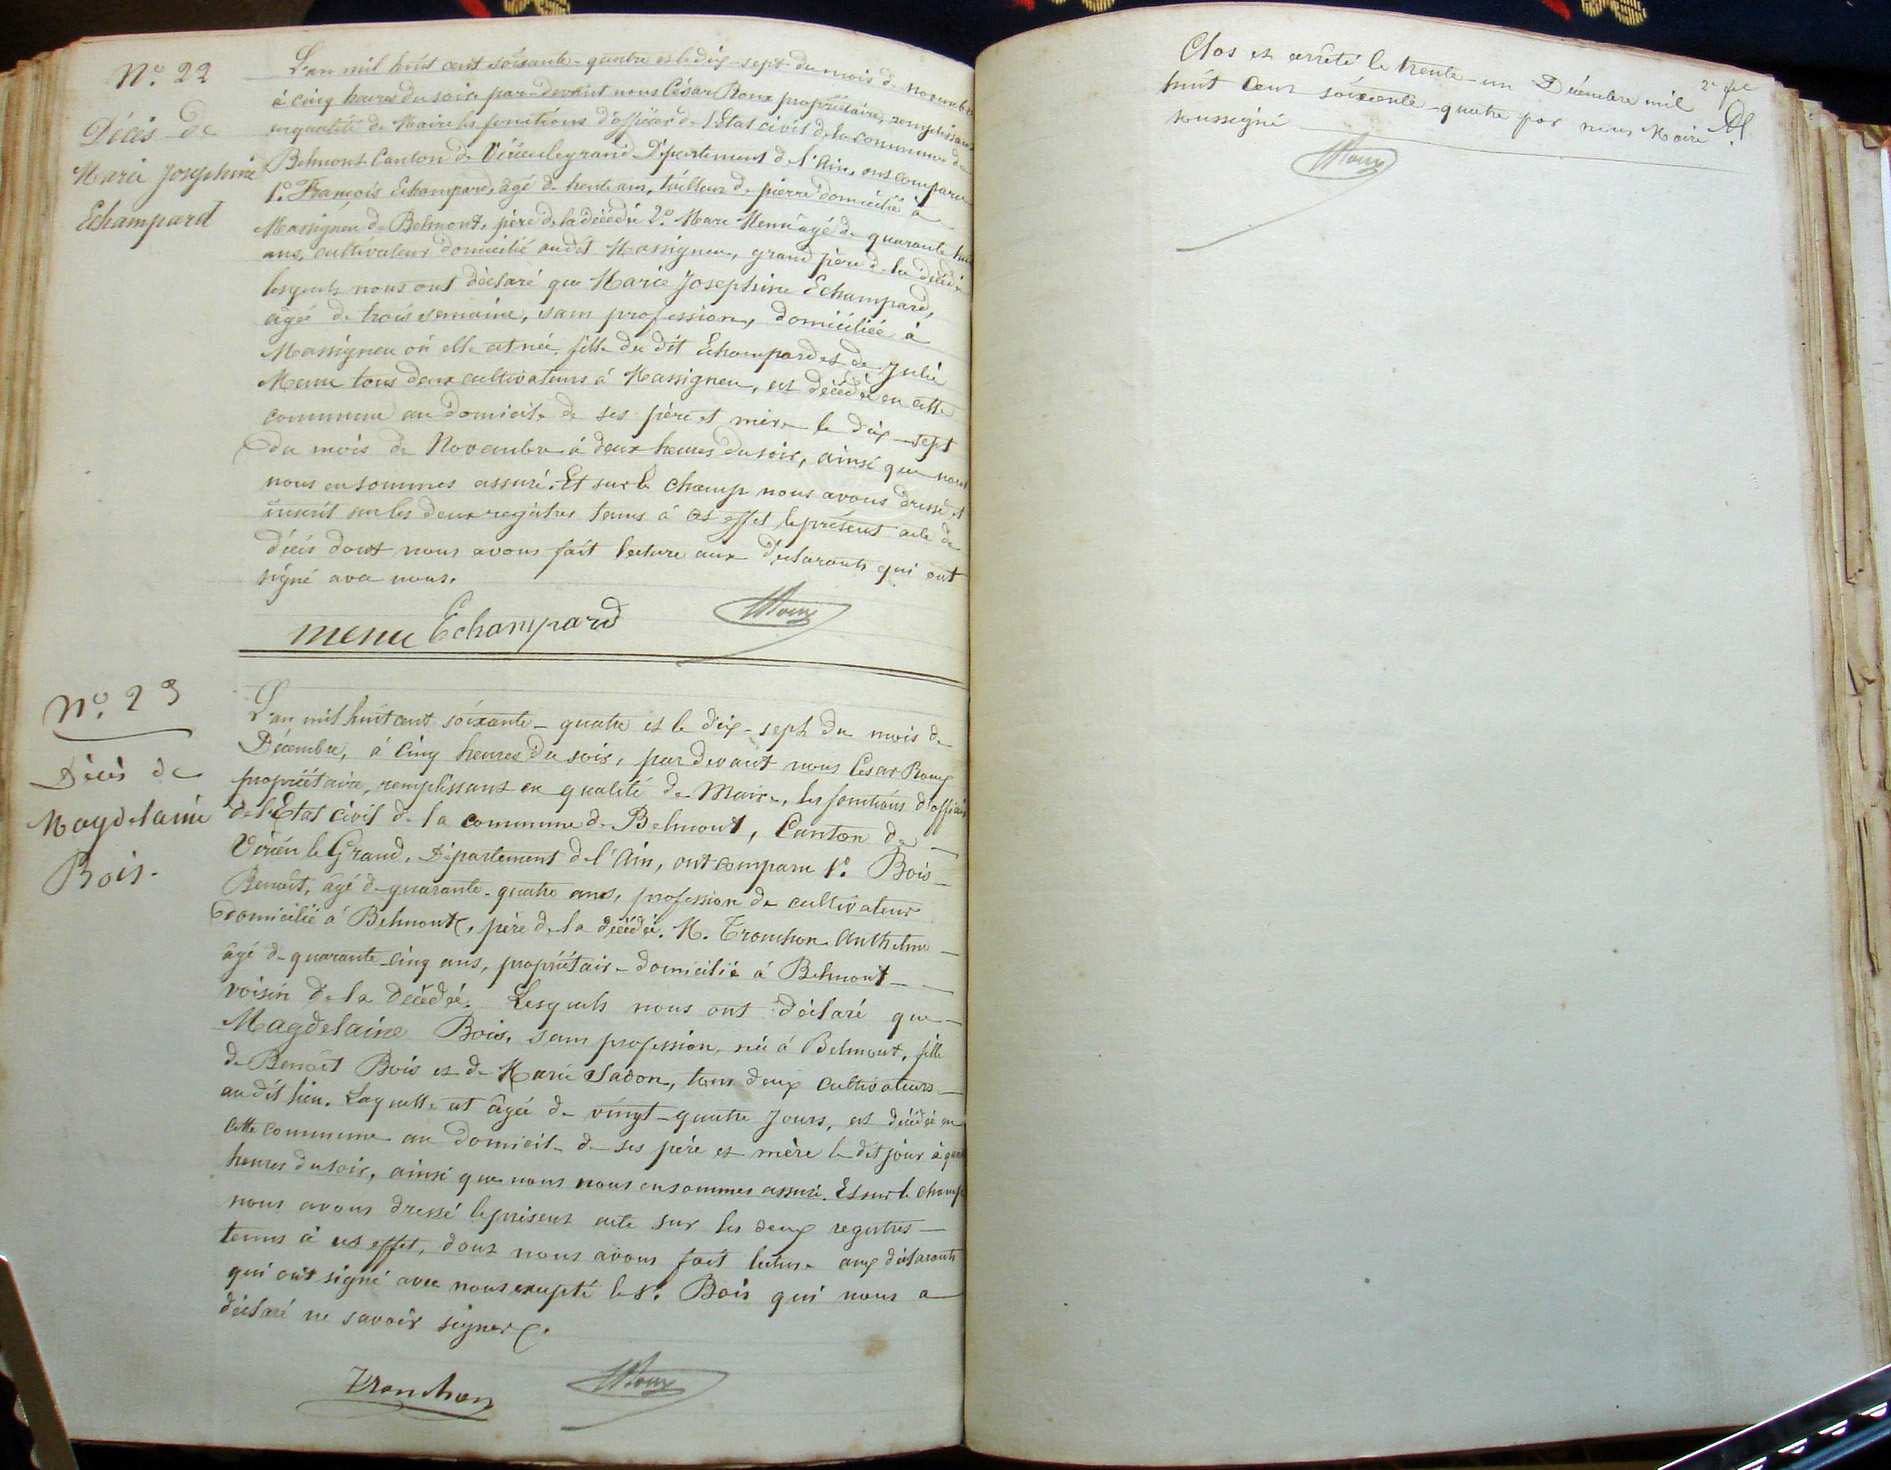 N.° 22
Décès de
Marie Josephine
Echampard
L'an mil huit cent soixante-quatre et le dix-sept du mois de Novembre
à cinq heures du soir par-devant nous César Roux propriétaire, remplissant
en qualité de Maire les fonctions d'officier de l'Etat civil de la commune de
Belmont Canton de Virieu le grand Département de l'Ain, ont comparu
1.° François Echampard, âgé de trente ans, tailleur de pierre domicilié à
Massigneu de Belmont, père de la décédée 2.° Marc Menu âgé de quarante huit
ans, cultivateur domicilié au dit Massigneu, grand père de la décédée
lesquels nous ont déclaré que Marie Josephine Echampard,
âgée de trois semaine, sans profession, domiciliée à
Massigneu où elle est née, fille du dit Echampard et de Julie
Menu tous deux cultivateurs à Massigneu, est décédée en cette
commune au domicile de ses père et mère le dix-sept
du mois de Novembre à deux heures du soir, ainsi que nous
nous en sommes assuré. Et sur le champ nous avons dressé et
inscrit sur les deux registres tenus à cet effet le présent acte de
décès dont nous avons fait lecture aux déclarants qui ont
signé avec nous.
menu Echampard Roux
N.° 23
Décès de
Magdelaine
Bois.
L'an mil huit cent soixante-quatre et le dix-sept du mois de
Décembre, à cinq heures du soir, par devant nous César Roux
propriétaire, remplissant en qualité de Maire, les fonctions d'officier
de l'Etat civil de la commune de Belmont, Canton de
Virieu le Grand, Département de l'Ain, ont comparu 1.° Bois
Benoît, âgé de quarante-quatre ans, profession de cultivateur
domicilié à Belmont, père de la décédée. M. Tronchon Anthelme
âgé de quarante-cinq ans, propriétaire domicilié à Belmont
voisin de la décédée. Lesquels nous ont déclaré que
Magdelaine Bois, sans profession, née à Belmont, fille
de Benoît Bois et de Marie Sadon, tous deux cultivateurs
au dit lieu. Laquelle est âgée de vingt-quatre jours, est décédée en
cette commune au domicile de ses père et mère le dit jour à
heures du soir, ainsi que nous nous en sommes assuré. Et sur le champ
nous avons dressé le présent acte sur les deux registres
tenus à cet effet, dont nous avons fait lecture aux déclarants
qui ont signé avec nous excepté le s.r Bois qui nous a
déclaré ne savoir signer.
Tronchon Roux
Clos et arrêté le trente-un Décembre mil
huit cent soixante-quatre par nous Maire
soussigné
Roux